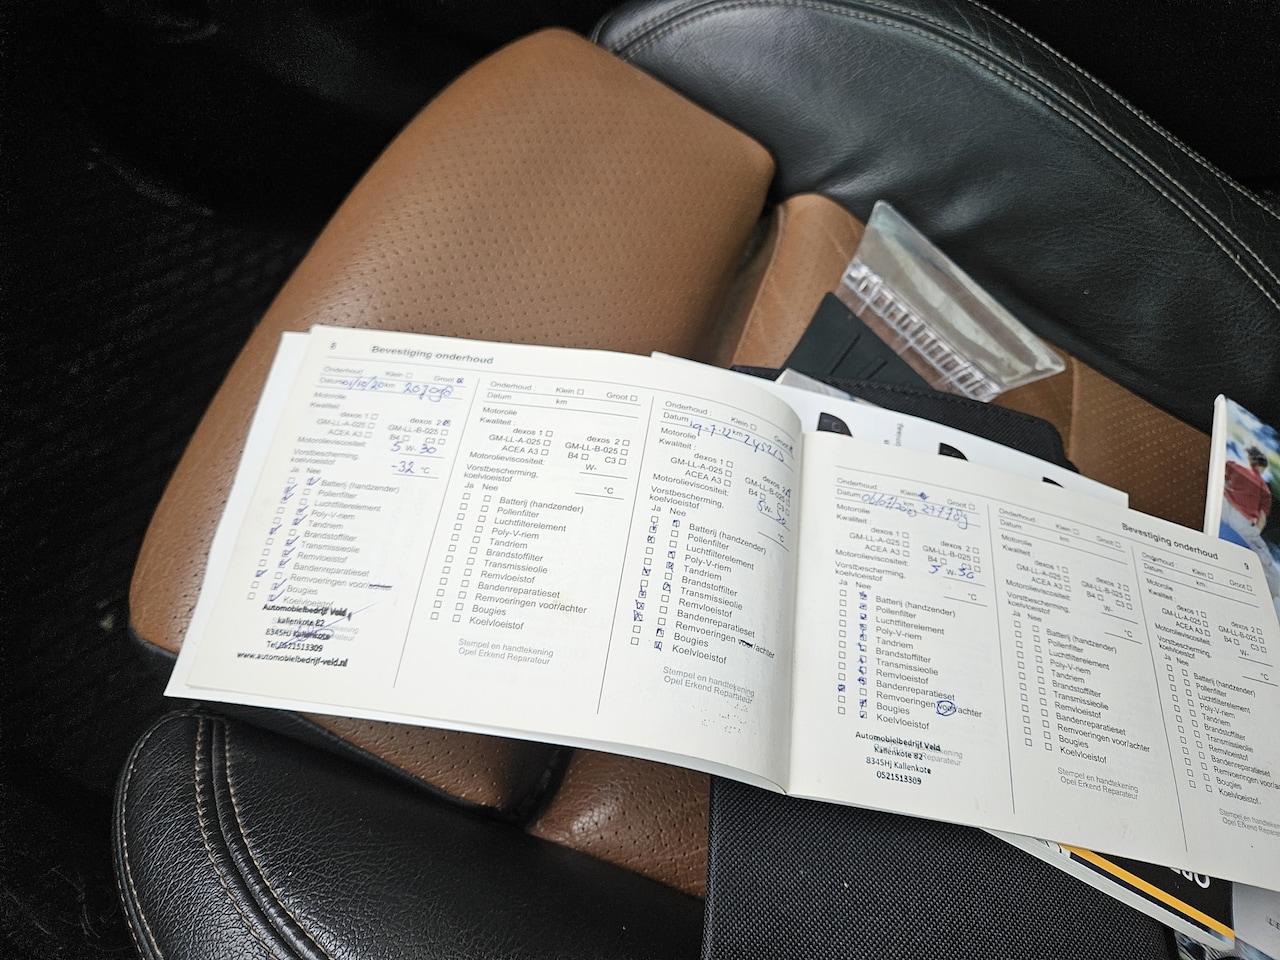 8 Bevestiging onderhoud
Onderhoud : Klein Groot
Datum 01/10/20 km
Motorolie
Kwaliteit :
dexos 1 dexos 2
GM-LL-A-025 GM-LL-B-025
ACEA A3 B4 C3
Motorolieviscositeit: 5 W- 30
Vorstbescherming,
koelvloeistof -32 °C
Ja Nee
Batterij (handzender)
Pollenfilter
Luchtfilterelement
Poly-V-riem
Tandriem
Brandstoffilter
Transmissieolie
Remvloeistof
Bandenreparatieset
Remvoeringen voor/achter
Bougies
Koelvloeistof
Automobielbedrijf Veld
kallenkote 82
8345HJ Kallenkote
Tel.0521513309
www.automobielbedrijf-veld.nl
Onderhoud : Klein Groot
Datum km
Motorolie
Kwaliteit :
dexos 1 dexos 2
GM-LL-A-025 GM-LL-B-025
ACEA A3 B4 C3
Motorolieviscositeit: W-
Vorstbescherming,
koelvloeistof °C
Ja Nee
Batterij (handzender)
Pollenfilter
Luchtfilterelement
Poly-V-riem
Tandriem
Brandstoffilter
Transmissieolie
Remvloeistof
Bandenreparatieset
Remvoeringen voor/achter
Bougies
Koelvloeistof
Stempel en handtekening
Opel Erkend Reparateur
Onderhoud : Klein Groot
Datum 19-7-22 km 245213
Motorolie
Kwaliteit :
dexos 1 dexos 2
GM-LL-A-025 GM-LL-B-025
ACEA A3 B4 C3
Motorolieviscositeit: 5 W- 30
Vorstbescherming,
koelvloeistof °C
Ja Nee
Batterij (handzender)
Pollenfilter
Luchtfilterelement
Poly-V-riem
Tandriem
Brandstoffilter
Transmissieolie
Remvloeistof
Bandenreparatieset
Remvoeringen voor/achter
Bougies
Koelvloeistof
Stempel en handtekening
Opel Erkend Reparateur
Onderhoud : Klein Groot
Datum km
Motorolie
Kwaliteit :
dexos 1 dexos 2
GM-LL-A-025 GM-LL-B-025
ACEA A3 B4 C3
Motorolieviscositeit: 5 W- 30
Vorstbescherming,
koelvloeistof °C
Ja Nee
Batterij (handzender)
Pollenfilter
Luchtfilterelement
Poly-V-riem
Tandriem
Brandstoffilter
Transmissieolie
Remvloeistof
Bandenreparatieset
Remvoeringen voor/achter
Bougies
Koelvloeistof
Automobielbedrijf Veld
Kallenkote 82
8345HJ Kallenkote
0521513309
Bevestiging onderhoud 9
Onderhoud : Klein Groot
Datum km
Motorolie
Kwaliteit :
dexos 1 dexos 2
GM-LL-A-025 GM-LL-B-025
ACEA A3 B4 C3
Motorolieviscositeit: W-
Vorstbescherming,
koelvloeistof °C
Ja Nee
Batterij (handzender)
Pollenfilter
Luchtfilterelement
Poly-V-riem
Tandriem
Brandstoffilter
Transmissieolie
Remvloeistof
Bandenreparatieset
Remvoeringen voor/achter
Bougies
Koelvloeistof
Stempel en handtekening
Opel Erkend Reparateur
Onderhoud : Klein Groot
Datum km
Motorolie
Kwaliteit :
dexos 1 dexos 2
GM-LL-A-025 GM-LL-B-025
ACEA A3 B4 C3
Motorolieviscositeit: W-
Vorstbescherming,
koelvloeistof
Ja Nee
Batterij (handzender)
Pollenfilter
Luchtfilterelement
Poly-V-riem
Tandriem
Brandstoffilter
Transmissieolie
Remvloeistof
Bandenreparatieset
Remvoeringen
Bougies
Koelvloeistof
Stempel en
Opel Erkend